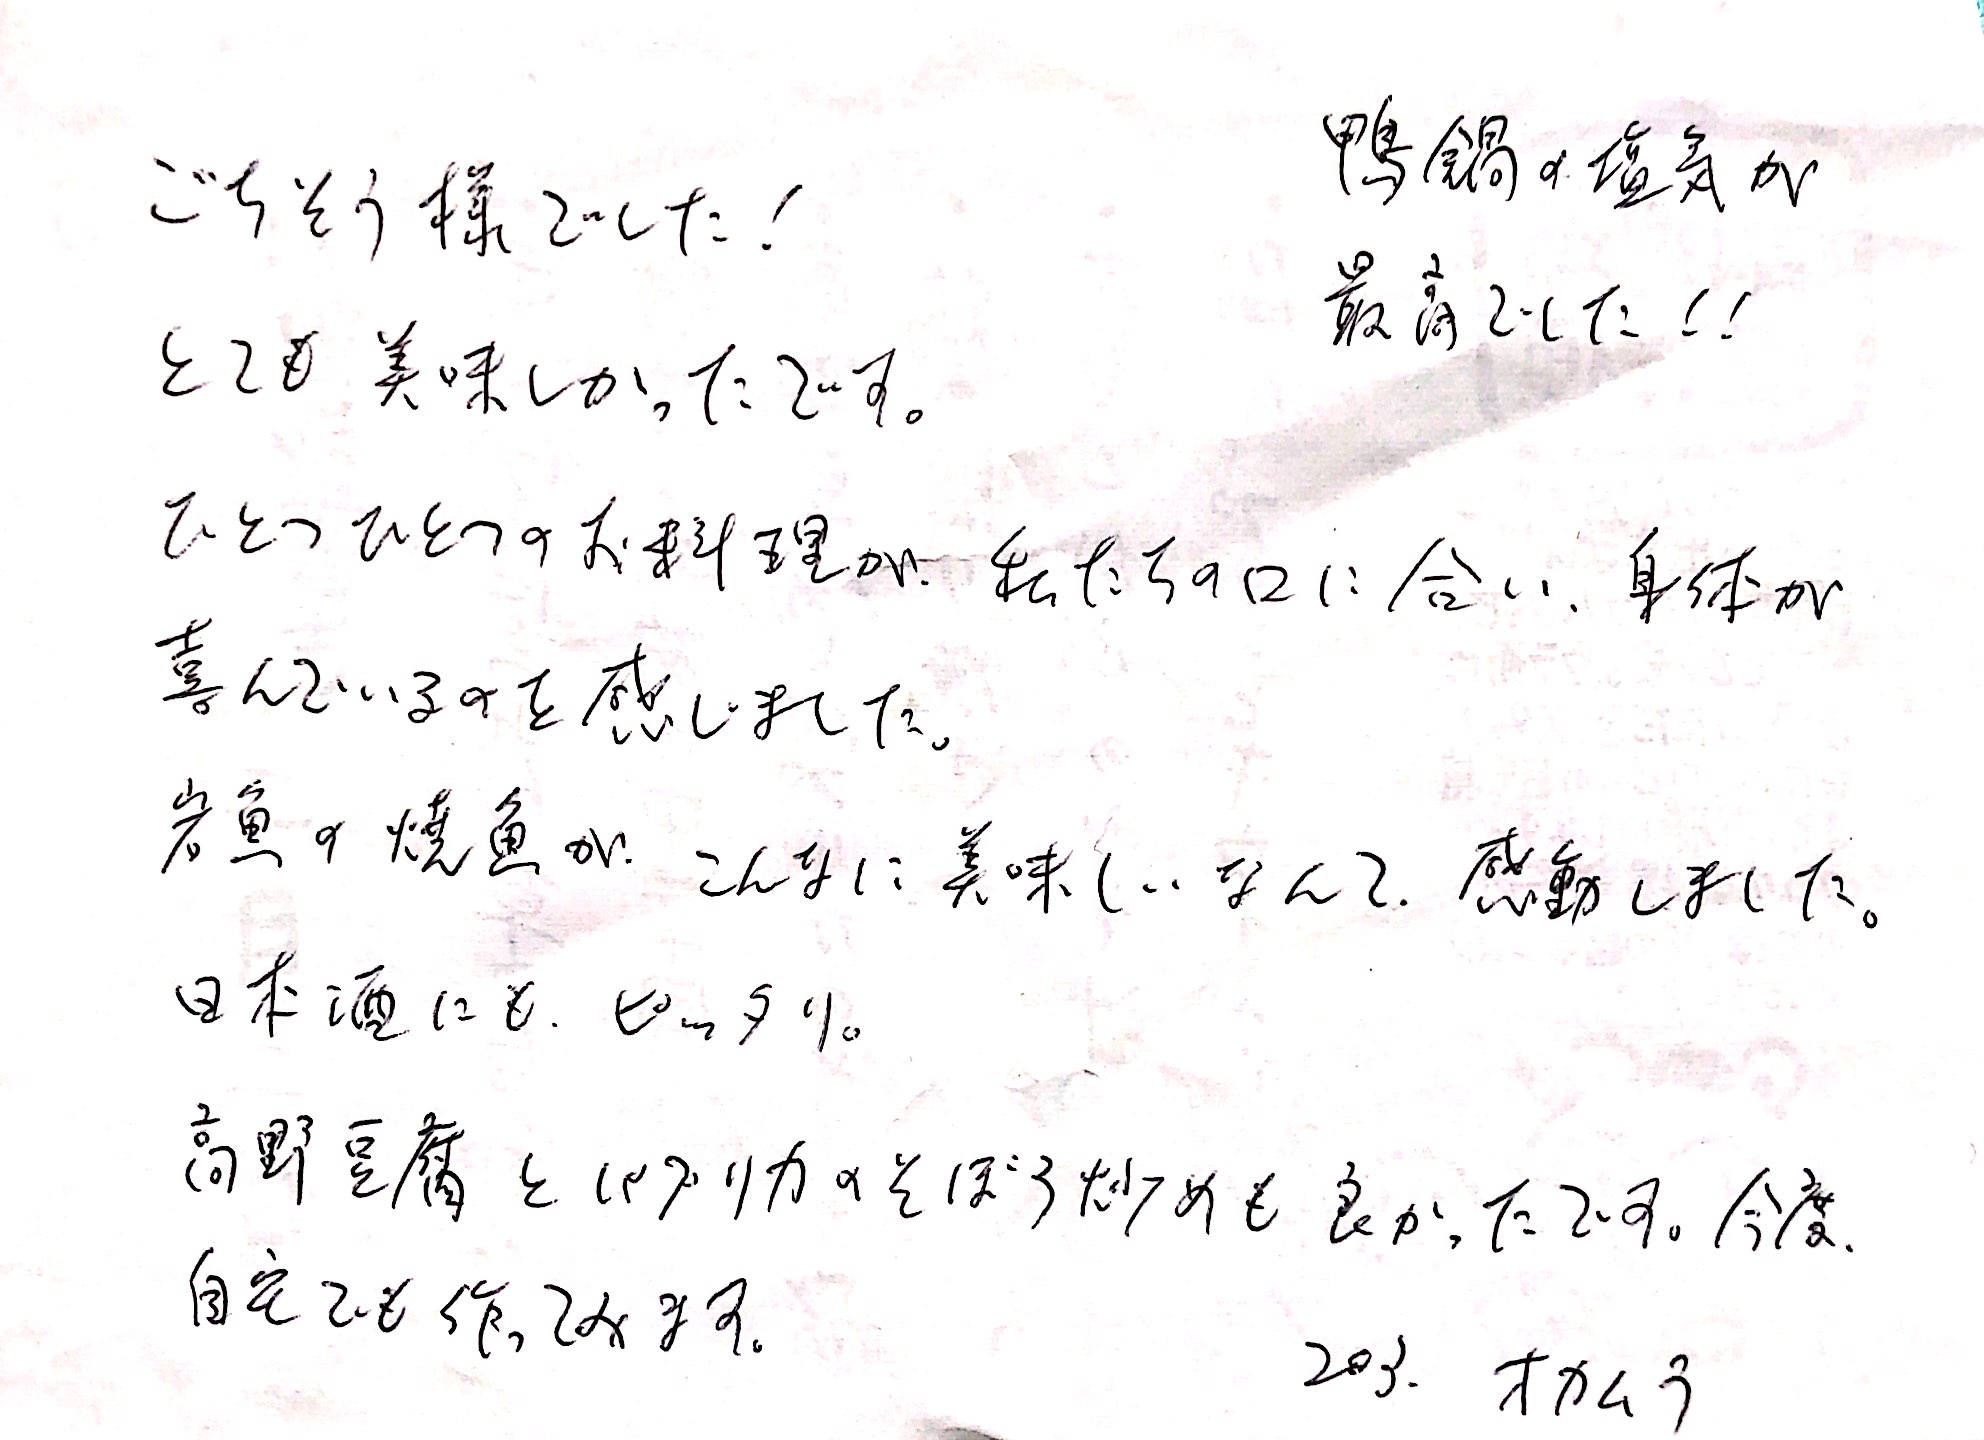 ごちそう様でした!
とても美味しかったです。
鴨鍋の塩気が
最高でした!!
ひとつひとつのお料理が、私たちの口に合い、身体が
喜んでいるのを感じました。
岩魚の焼魚が、こんなに美味しいなんて、感動しました。
日本酒にも、ピッタリ。
高野豆腐とパプリカのそぼろ炒めも良かったです。今度、
自宅でも作ってみます。
203. オカムラ